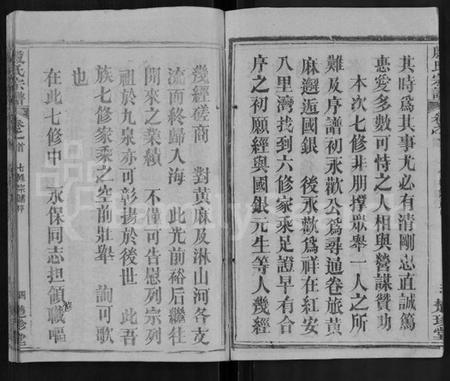 其時爲其事尤必有清剛忠直誠篤
惠愛多數可恃之人相與營謀贊助
本次七修非朋撑眾舉一人之所
難及序譜初永歡公爲尋通卷旅黃
麻邂逅國銀 後永歡爲祥在紅安
八里灣找到六修家乘足證早有合
序之初願經與國銀元生等人幾經
幾經磋商 對黃麻及淋山河各支
流而終歸入海 此光前裕后繼往
開來之業績 不僅可告慰列宗列
祖於九泉亦可彰揚於後世 此吾
族七修家乘之空前壯舉 詢可歌
也
在此七修中 永保同志担領職嘔
氏宗譜
卷首